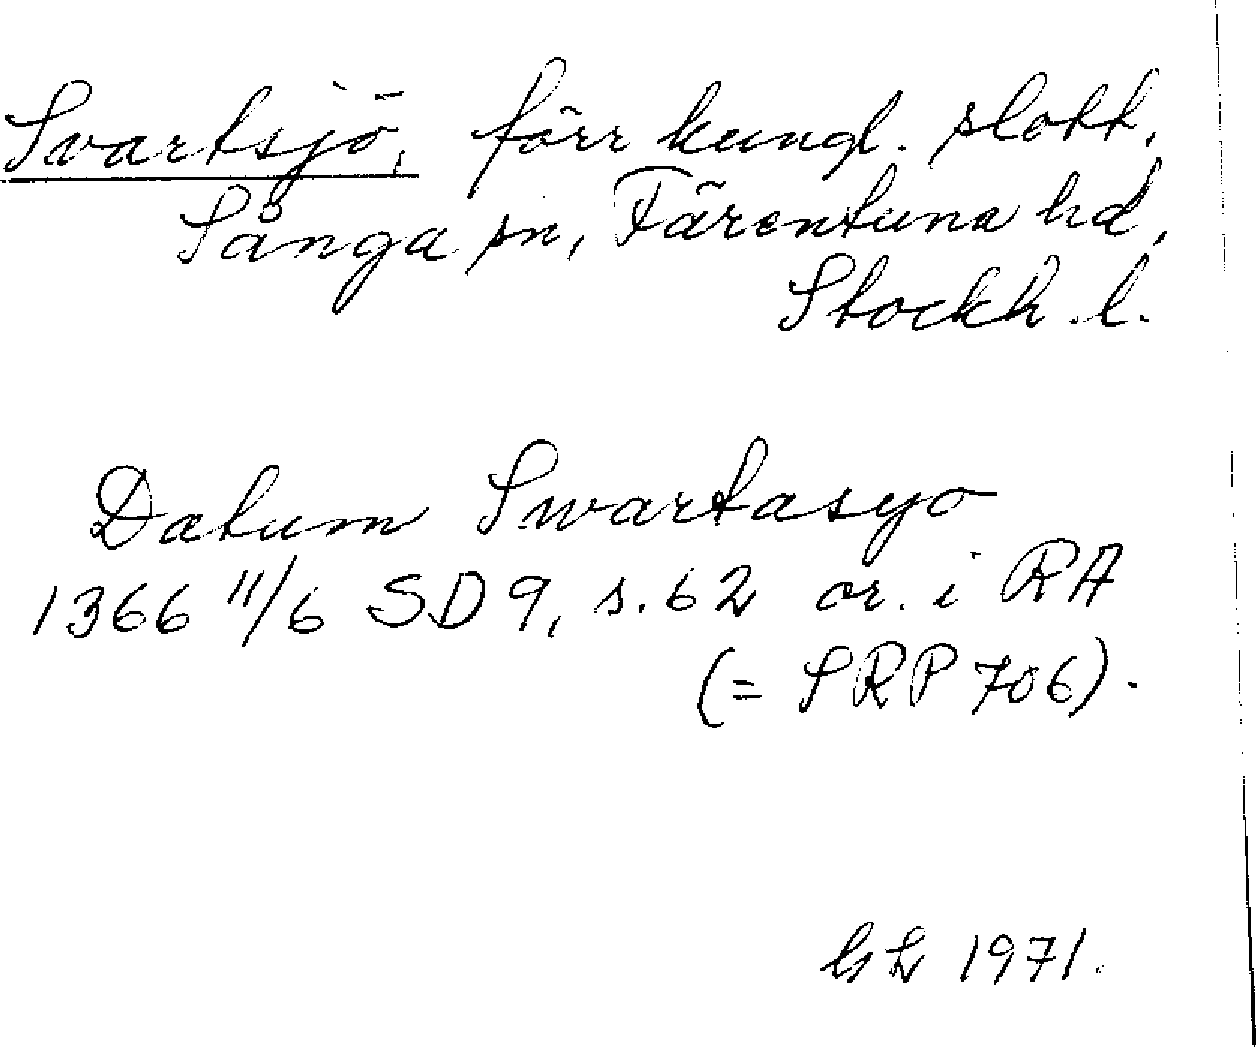 Svartsjö, förr kungl. slott,
Sånga sn, Färentuna hd,
Stockh. l.
Datum Swartasyo
1366 11/6 SD 9, s. 62 or. i RA
(= SRP 706).
1971.